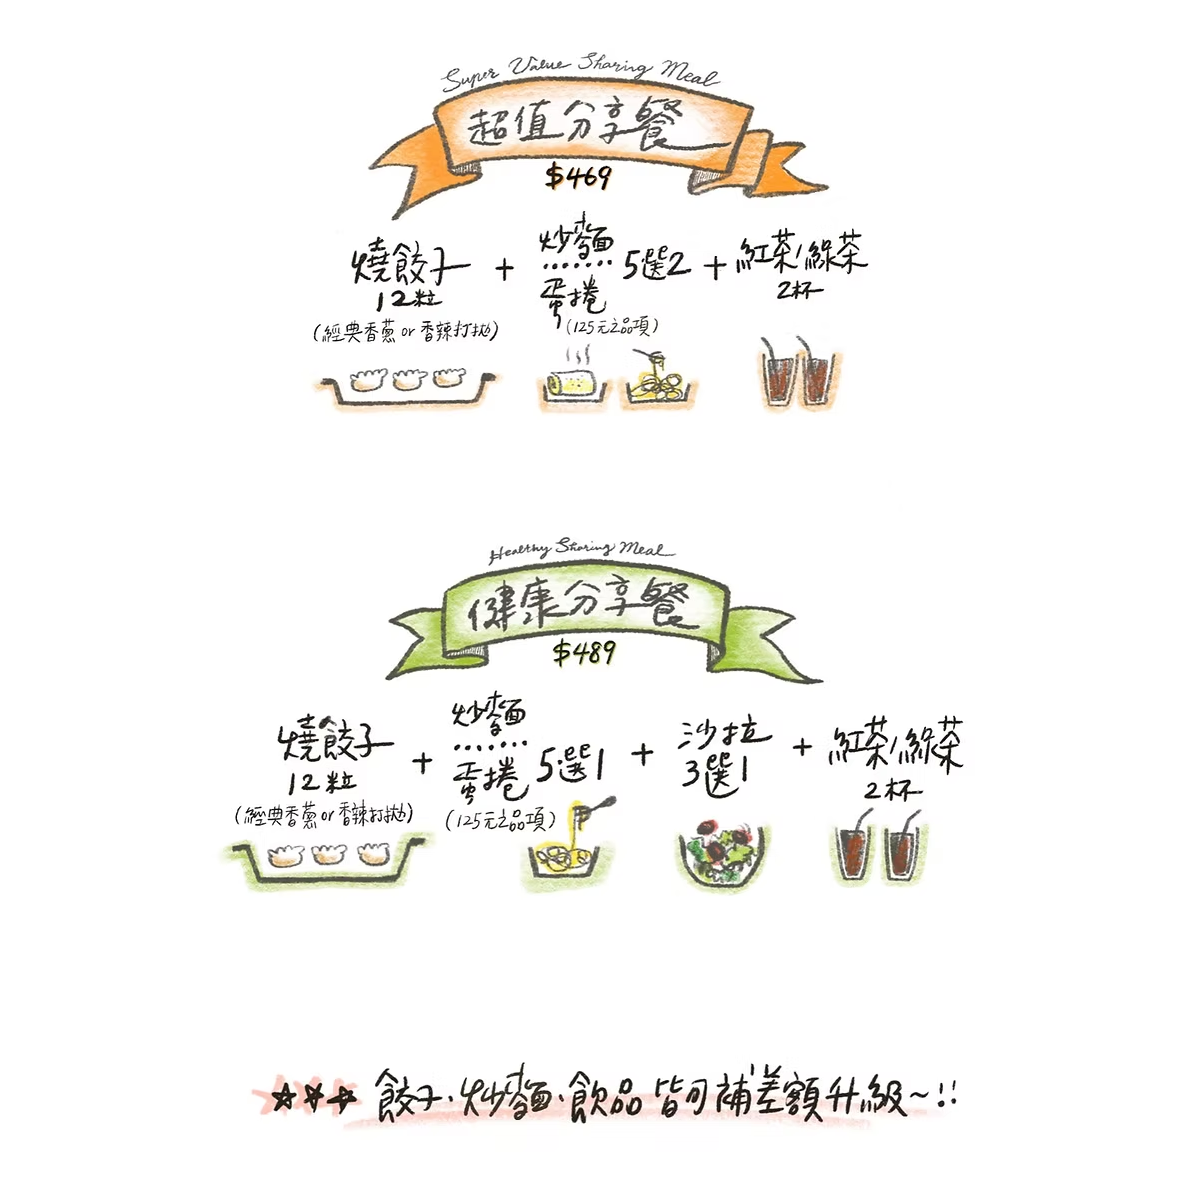 Super Value Sharing Meal
超值分享餐
$469
燒餃子
12粒
(經典香蔥 or 香辣打拋)
+
炒麵
蛋捲
5選2
(125元之品項)
+
紅茶/綠茶
2杯
Healthy Sharing Meal
健康分享餐
$489
燒餃子
12粒
(經典香蔥 or 香辣打拋)
+
炒麵
蛋捲
5選1
(125元之品項)
+
沙拉
3選1
+
紅茶/綠茶
2杯
餃子、炒麵、飲品皆可補差額升級~!!